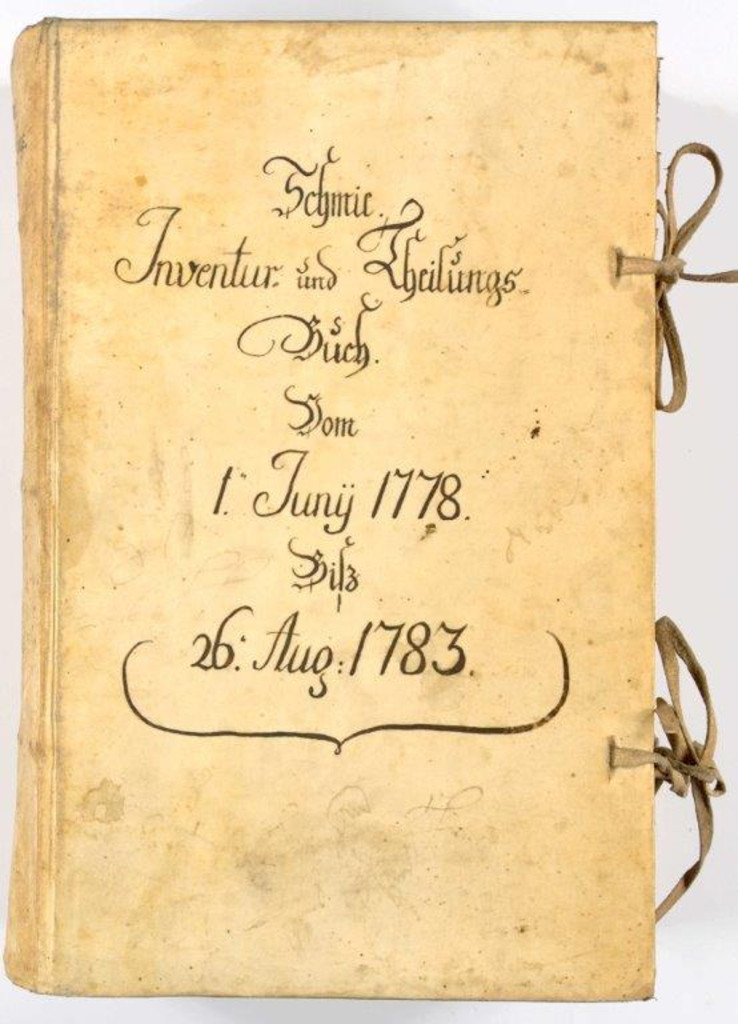 Schmie.
Inventur- und Theilungs-
Buch.
Vom
1. Junÿ 1778.
Bisz
26: Aug: 1783.